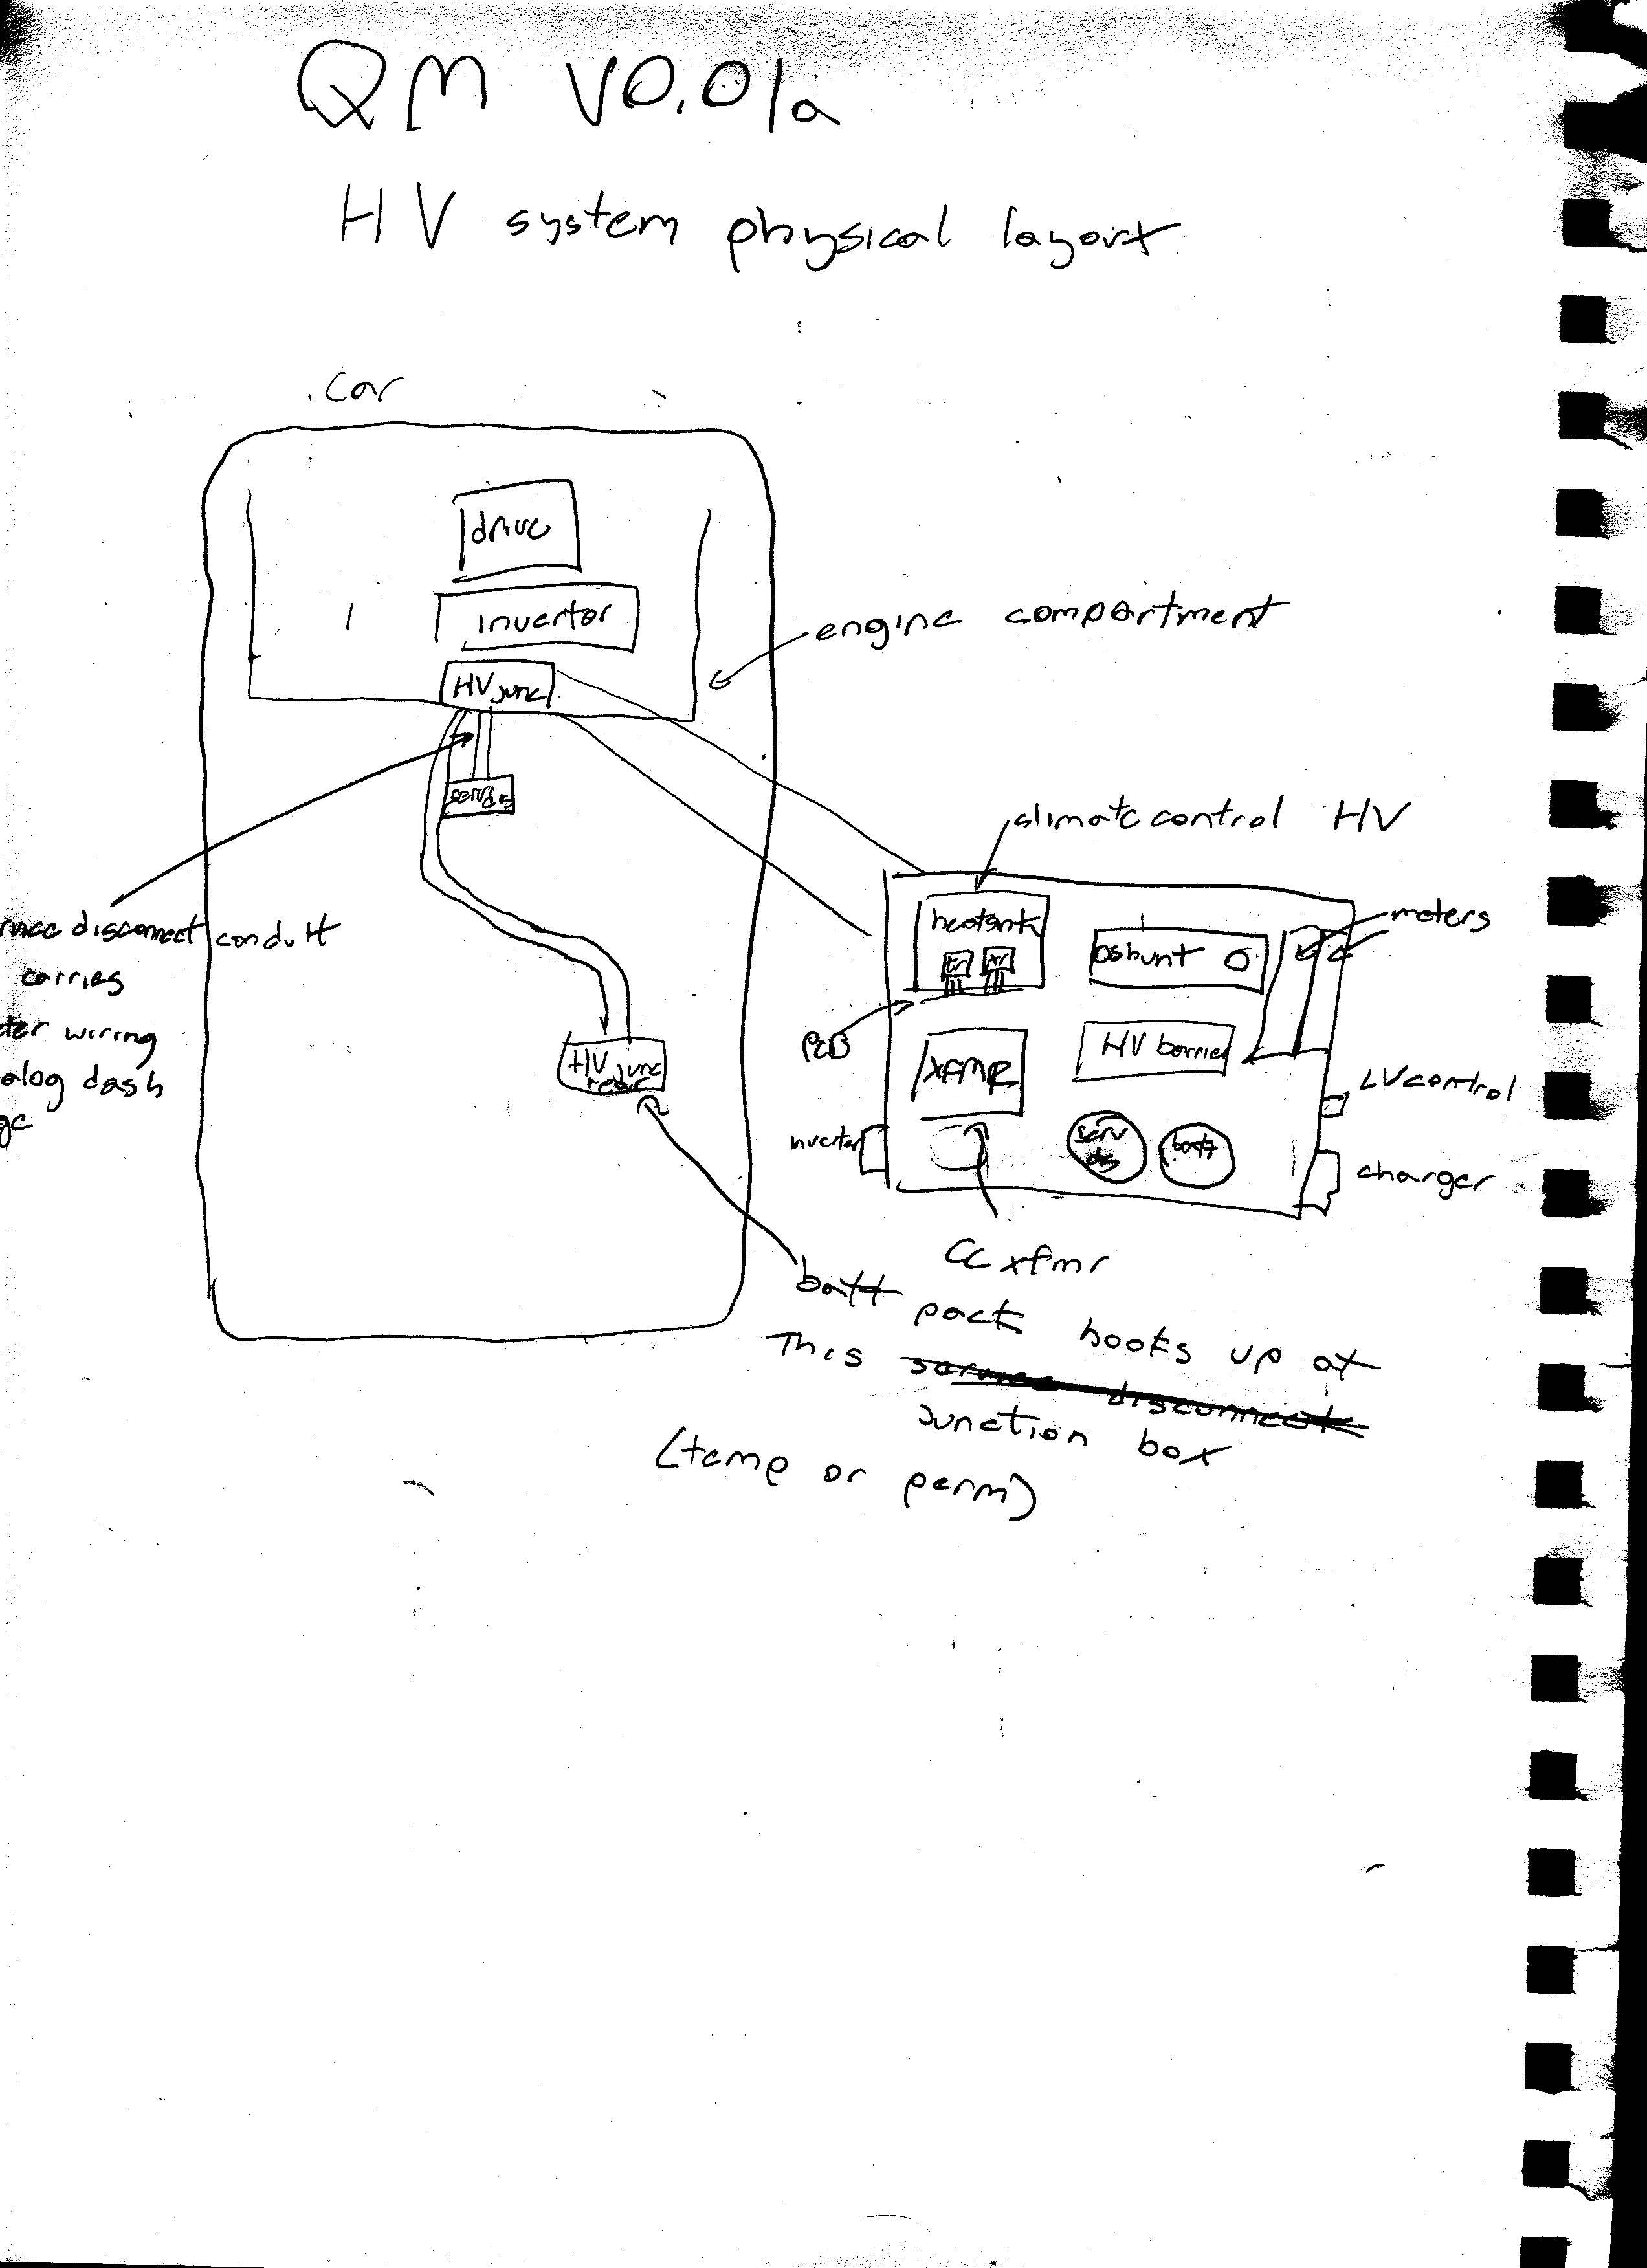 QM V0.01a
HV system physical layout
car
drive
invertor
engine compartment
HV junc
serv dis
climate control HV
heatsink
tr
tr
shunt
meters
disconnect conduit
carries
wiring
dash
PCB
HV barrier
XFMR
HV junc
rear
LV control
inverter
serv
dis
batt
charger
CC xfmr
batt pack hooks up at
This service disconnect
Junction box
(temp or perm)